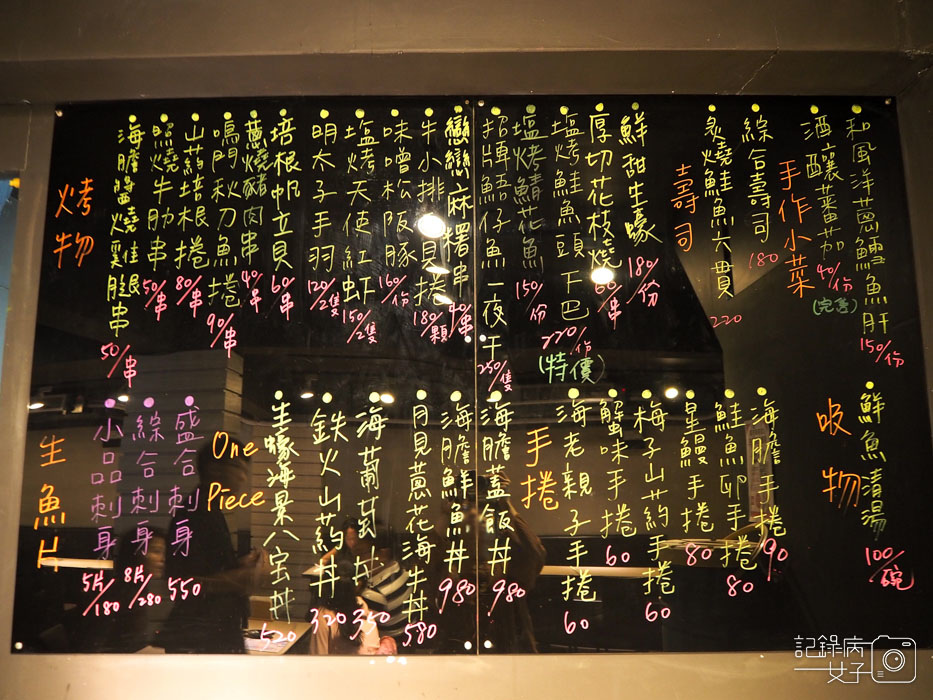 和風洋蔥鱈魚肝 150/份
酒釀蕃茄 40/份
(完售)
手作小菜
綜合壽司 180
炙燒鮭魚六貫 220
壽司
鮮甜生蠔 180/份
厚切花枝燒 60/串
塩烤鮭魚頭下巴 220/份
(特價)
塩烤鯖花魚 150/份
招牌鮖仔魚一夜干 250/隻
戀戀麻糬串 40/串
牛小排貝捲 180/顆
味噌松阪豚 160/份
塩烤天使紅蝦 150/2隻
明太子手羽 120/2隻
培根帆立貝 60/串
蔥燒豬肉串 40/串
鳴門秋刀魚捲 90/串
山葯培根捲 80/串
照燒牛肋串 50/串
海膽醬燒雞腿串 50/串
烤物
鮮魚清湯 100/碗
吸物
海膽手捲 90
鮭魚卵手捲 80
星鰻手捲 80
梅子山葯手捲 60
蟹味手捲 60
海老親子手捲 60
手捲
海膽蓋飯丼 980
海膽鮮魚丼 980
月見蔥花海牛丼 580
海葡萄丼 350
鉄火山葯丼 320
生蠔海景八宝丼 520
One Piece
盛合刺身 550
綜合刺身 8片/280
小品刺身 5片/180
生魚片
記錄病女子